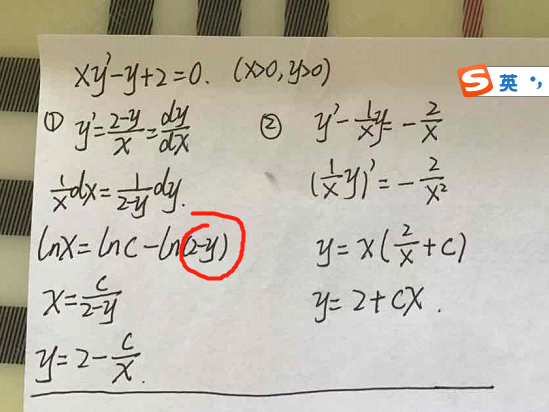 xy'-y+2=0. (x>0,y>0)
① y'=\frac{2-y}{x}=\frac{dy}{dx}
\frac{1}{x}dx=\frac{1}{2-y}dy.
lnx=lnc-ln(2-y)
x=\frac{c}{2-y}
y=2-\frac{c}{x}.
② y'-\frac{1}{x}y=-\frac{2}{x}
(\frac{1}{x}y)'=-\frac{2}{x^2}
y=x(\frac{2}{x}+c)
y=2+cx.
S英